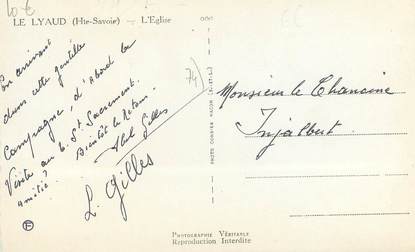 10 €
LE LYAUD (Hte-Savoie) — L'Eglise
En arrivant
dans cette gentille
Campagne, d'abord la
Visite au T. St Sacrement.
Bientôt le Retour.
Amitié
Gilles
L. Gilles
74)
PHOTO COMBIER MACON
Monsieur le Chanoine
Injalbert
PHOTOGRAPHIE VÉRITABLE
Reproduction Interdite